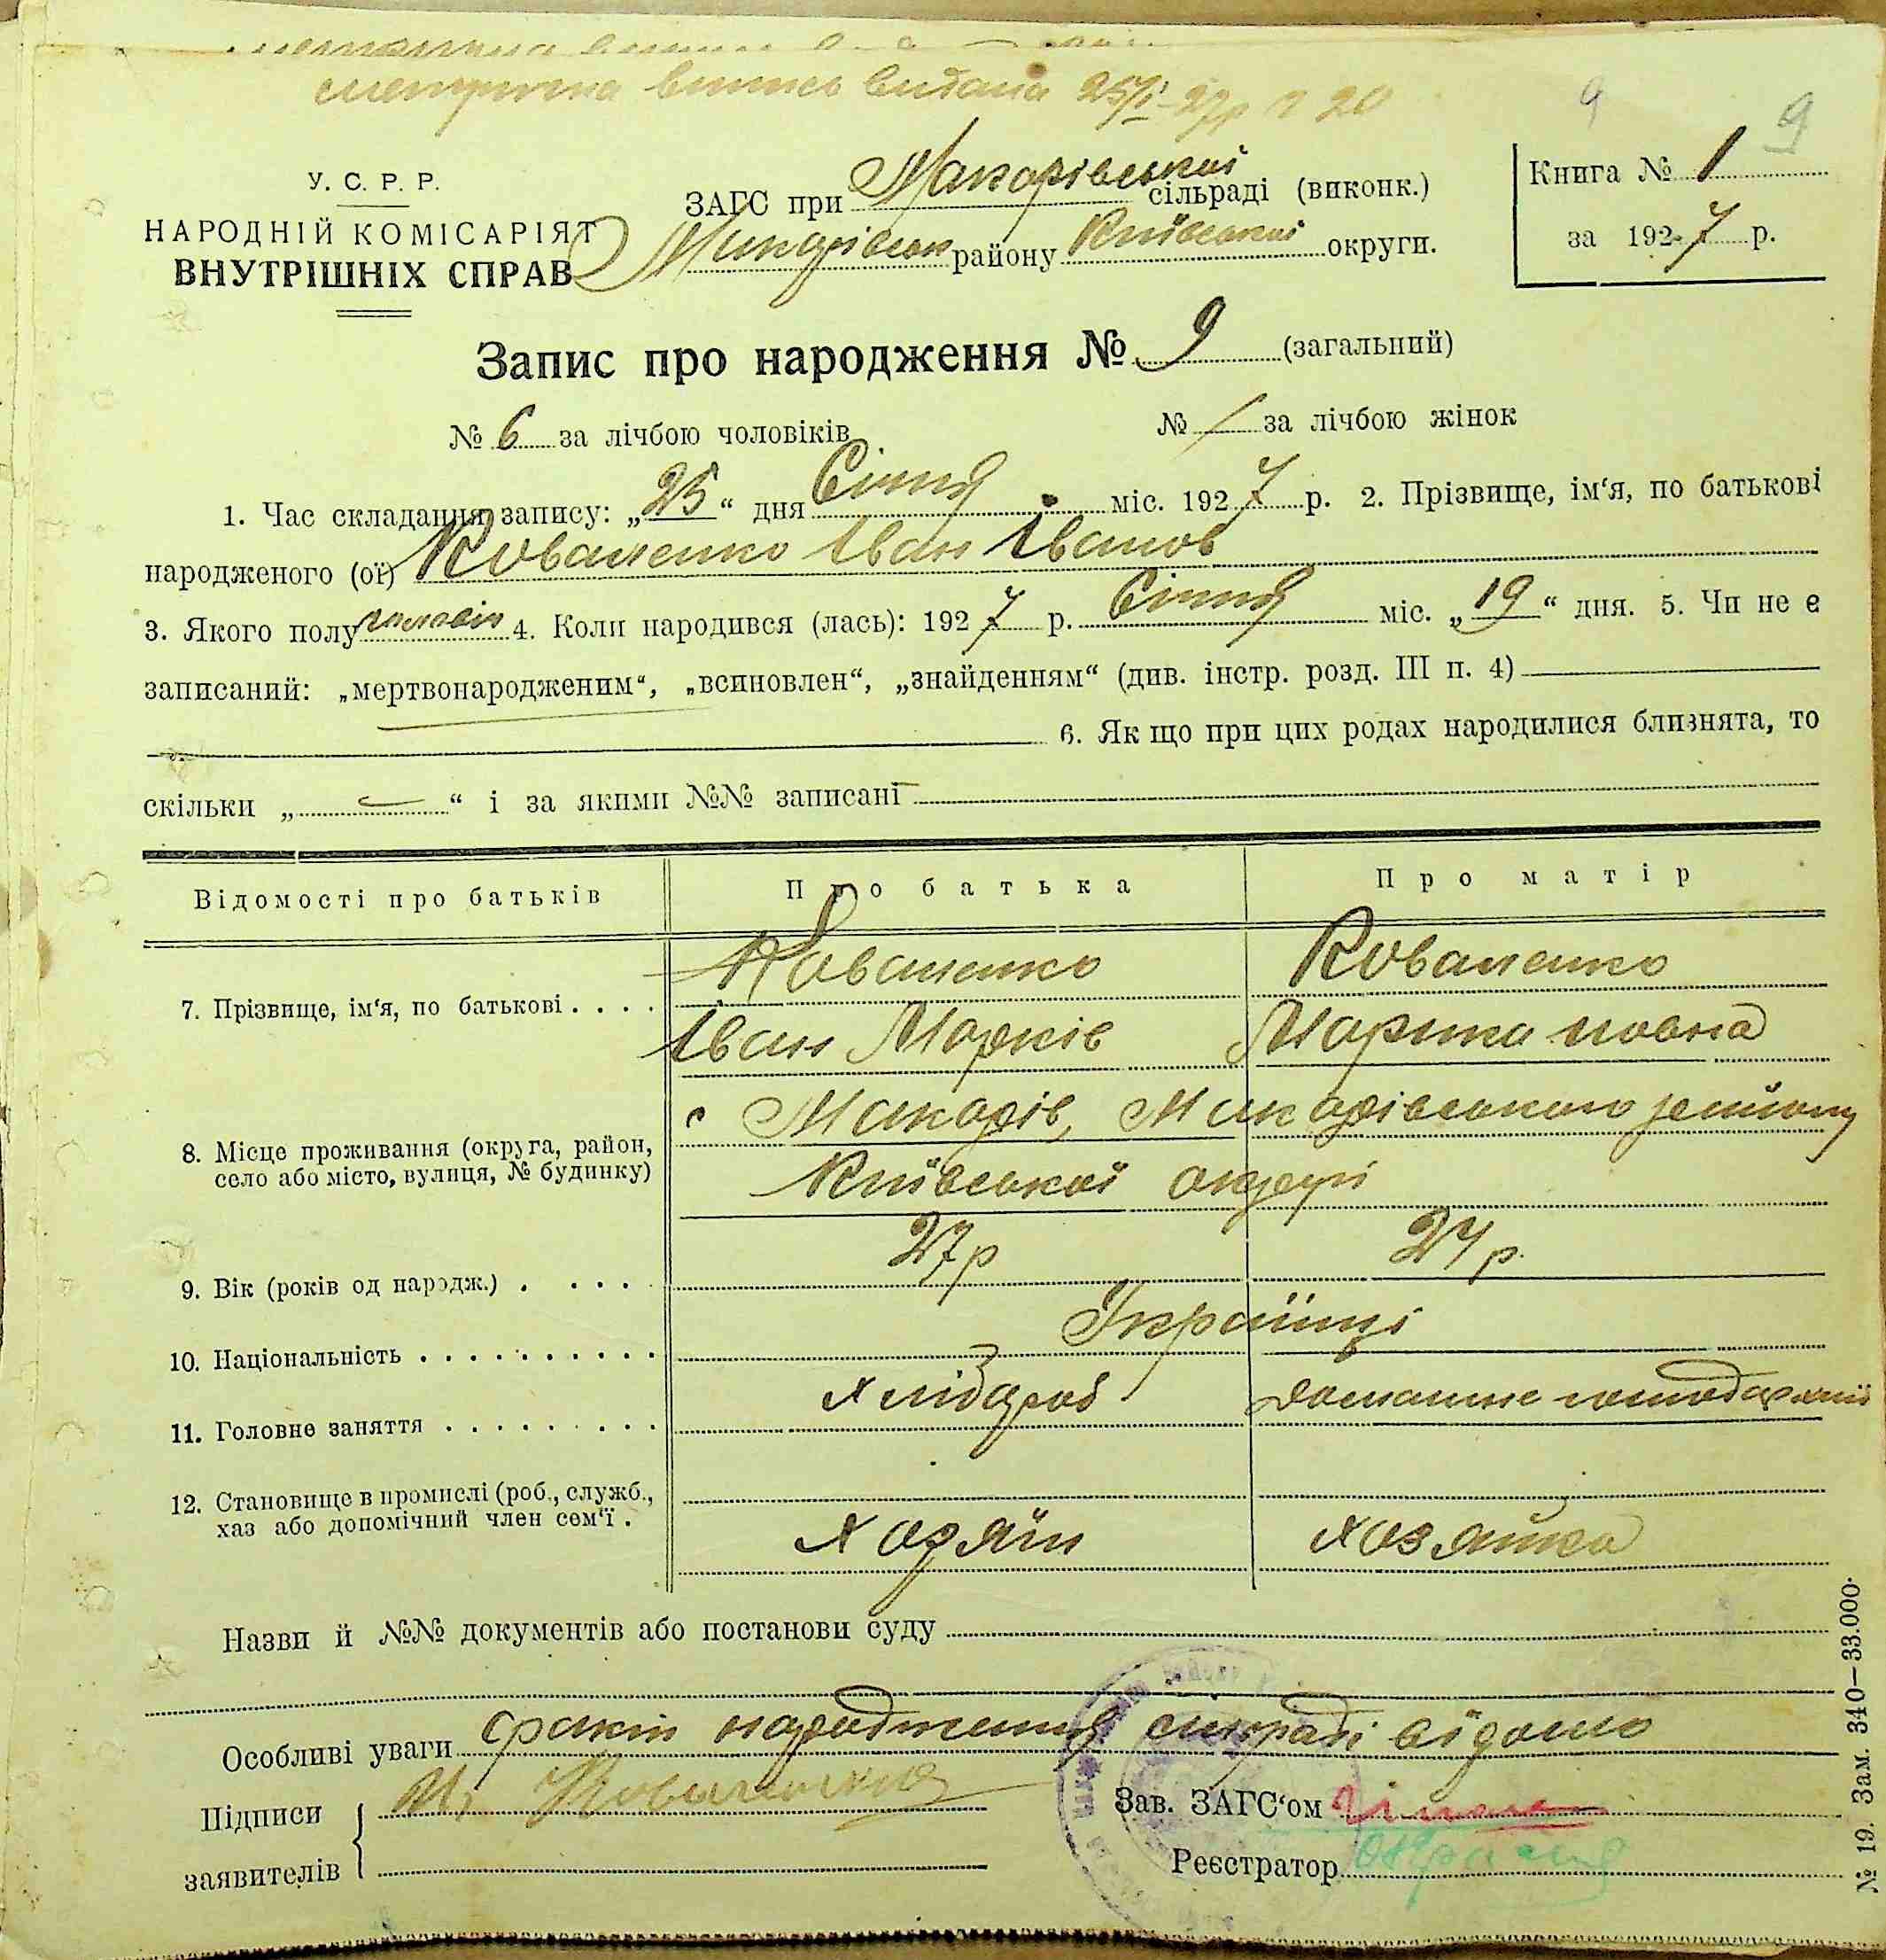 метрична випись видана 25/I-27р № 20
9 9
У. С. Р. Р.
НАРОДНІЙ КОМІСАРІЯТ
ВНУТРІШНІХ СПРАВ
ЗАГС при Макарівській сільраді (виконк.)
Макарівськ району Київської округи.
Книга № 1
за 1927 р.
Запис про народження № 9 (загальний)
№ 6 за лічбою чоловіків № / за лічбою жінок
1. Час складання запису: „25“ дня Січня міс. 1927 р. 2. Прізвище, ім‘я, по батькові
народженого (ої) Коваленко Іван Іванов
3. Якого полу чоловіч 4. Коли народився (лась): 1927 р. Січня міс. „19“ дня. 5. Чи не є
записаний: „мертвонародженим“, „всиновлен“, „знайденням“ (див. інстр. розд. III п. 4)
6. Як що при цих родах народилися близнята, то
скільки „ — “ і за якими №№ записані
Відомості про батьків Про батька Про матір
7. Прізвище, ім‘я, по батькові . . . . Коваленко Коваленко
Іван Марків Марина
8. Місце проживання (округа, район, с Макарів, Макарівського району
село або місто, вулиця, № будинку) Київської округи
9. Вік (років од народж.) . . . . 27р 24р.
10. Національність . . . . . . . . . . Українці
11. Головне заняття . . . . . . . . . хлібороб домашнє господарство
12. Становище в промислі (роб., служб.,
хаз або допомічний член сем‘ї . хозяїн хозяйка
Назви й №№ документів або постанови суду
Особливі уваги факт народження сільраді відомо
Підписи И. Коваленко Зав. ЗАГС‘ом
заявителів Реєстратор
№ 19. Зам. 340—33.000.